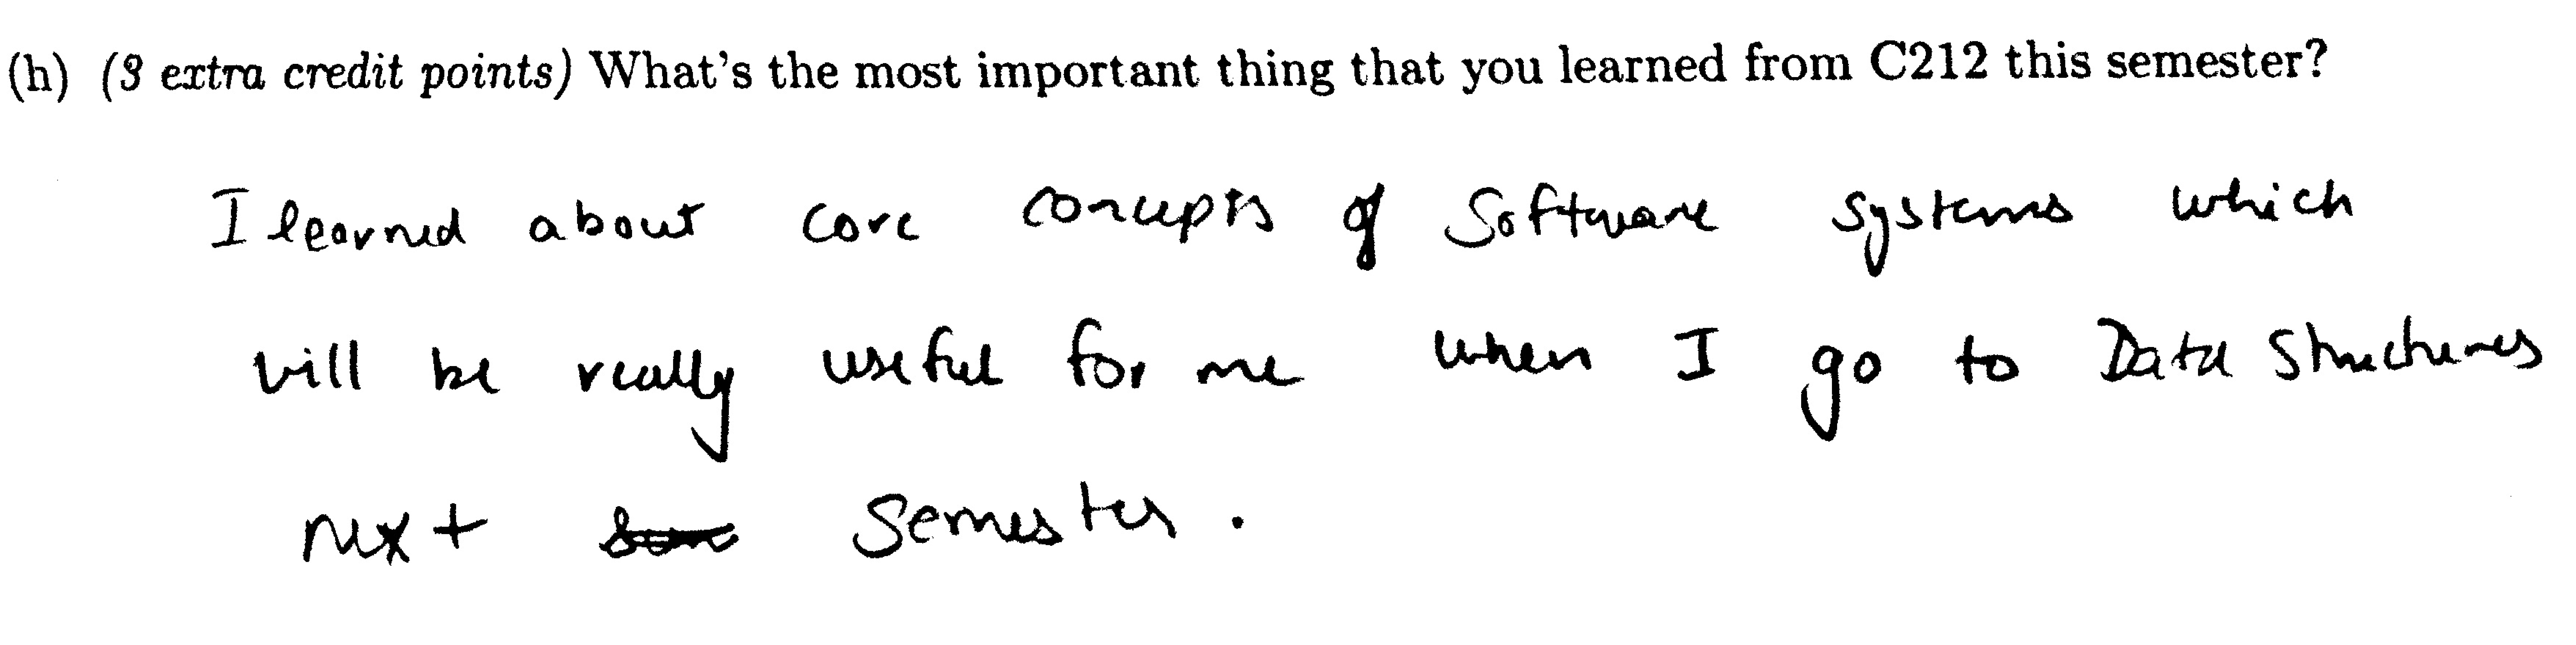 (h) (3 extra credit points) What's the most important thing that you learned from C212 this semester?
I learned about core concepts of Software systems which
will be really useful for me when I go to Data Structures
next semester.